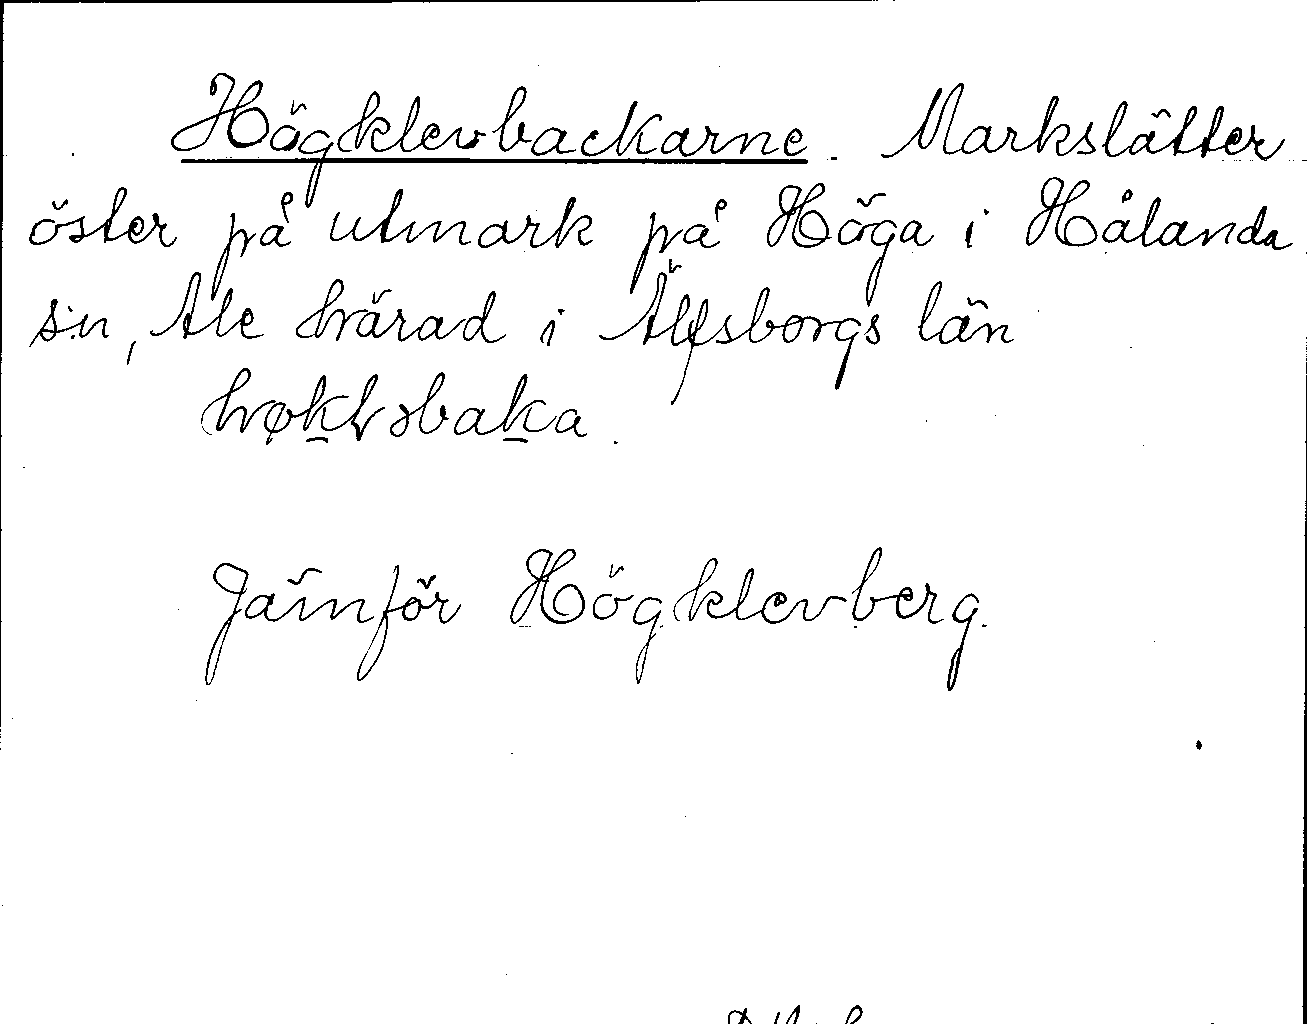 Högklevbackarne. Markslätter
öster på utmark på Höga i Hålanda
s:n, Ale härad i Älfsborgs län
Jämför Högklevberg.